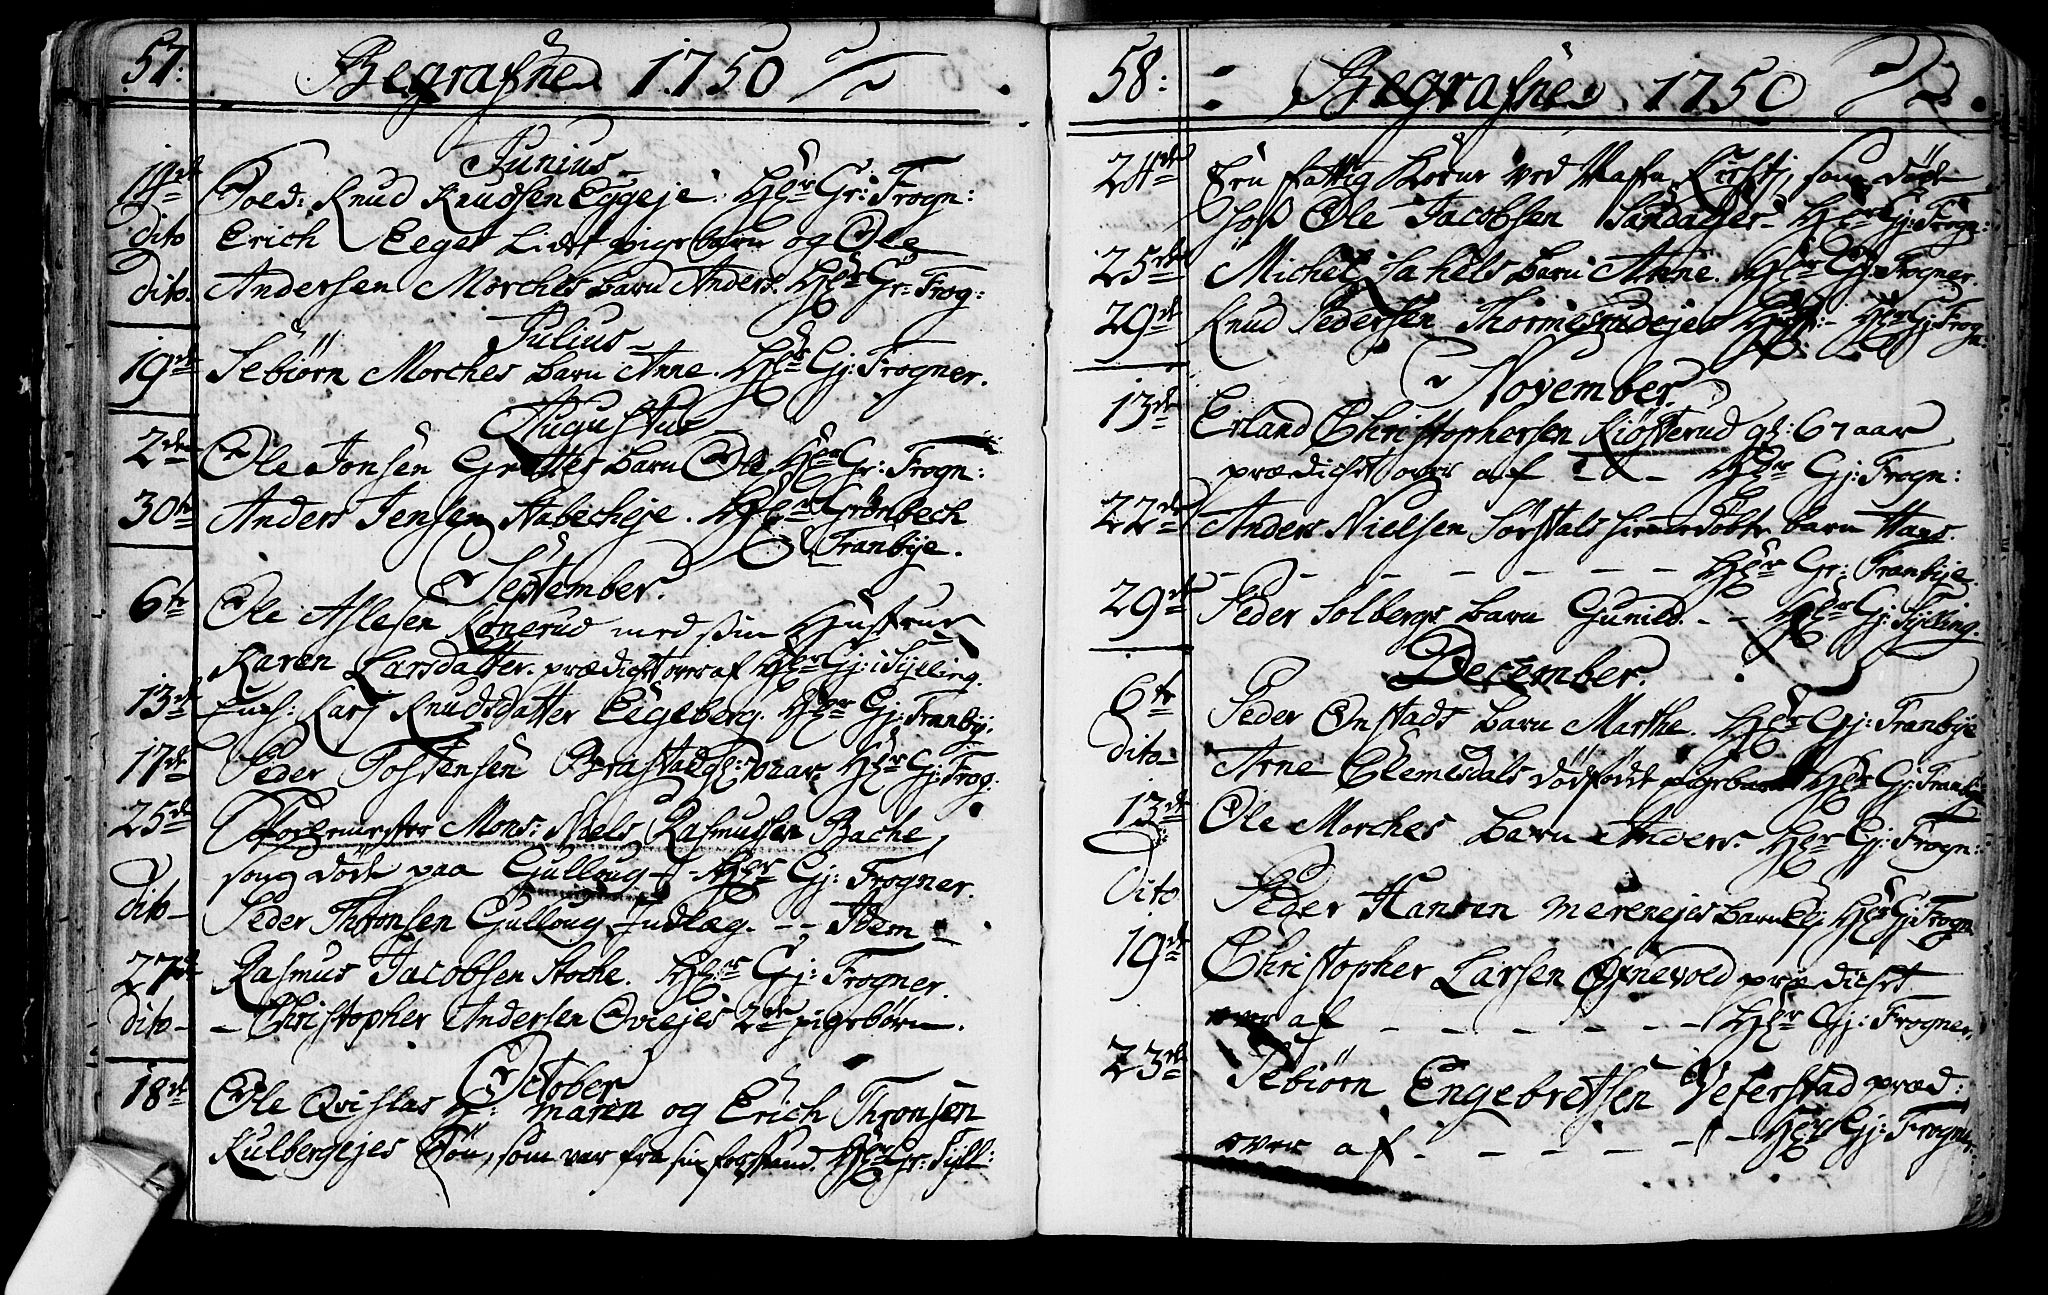 57.
Begrafne 1750
Junius
14de Knud Knudsen Eggeje. Hr: Gr: Frogn:
dito Erich Eeges Lidet pigebarn og Ole
dito. Andersen Morches barn Anders. Hr: Gr: Frog:
Julius
19de Tebiörn Morches barn Anne. Hr: Gj: Frogner.
Augustus
2den Ole Jonsen Gretters barn Ole. Hr: Gr: Frogn:
30te Anders Jensen Stabecheje. Hr: Grönbech
Tranbÿe.
September.
6te Ole Aslesen Konerud med sin Hustrue
Karen Larsdatter. prædichet over af Hr: Gj: i Sylling.
13de Knudsdatter Eigeberg. Hr: Gj: Tranbÿ:
17de Peder Tostensen Bratstad Hr: Gj: Frog:
25de Mons: Niels Rasmussen Bache,
som döde paa Gulloug - Hr: Gj: Frogner.
dito - Peder Thronsen Gulloug Indlæg. - - Idem -
27de Rasmus Jacobsen Stoche. Hr: Gj: Frogner.
dito - - Christopher Andersen Oviejes 2de pigebörn.
October
18de Ole Qvislas H: Maren og Erich Thronsen
Kulbergejes Sön, som var fra sin forstand. Hr: Gr: Sÿll:
58:
Begrafne 1750
24de Een fattig som döde
hoß Ole Jacobsen Sandager - Hr: Gj: Frogn:
25de Michel barn Anne. Hr: Gj: Frogner.
29de Knud Pedersen Hr: Gj: Frogn:
November.
13de Erland Christophersen Kiösterud gl: 67 aar
prædichet over af - - - Hr: Gj: Frogn:
22de Anders Nielsen Sörstals barn Hans.
- - - - - - - Hr: Gr: Tranbÿe.
29de Peder Solbergs barn Gunild. - - Hr: Gj: Sÿlling.
December.
6te Peder Onstads barn Marthe. Hr: Gj: Tranbÿe
dito - Arne Clemesdals dödfödt pigebarn Hr: Gj: Tranbÿe
13de Ole Morches barn Anders. Hr: Gj: Frogn:
dito Peder Hansen Merenejes barn Hr: Gj: Frogn
19de Christopher Larsen Öfnevold prædichet
over af - - - - - - Hr: Gj: Frogner.
23de Tebiörn Engebretsen Veferstad præd:
over af - - - - - - Hr: Gj: Frogner.